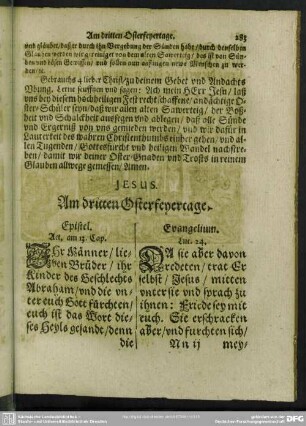 Am dritten Osterfeyertage. 283
und glaubet/daß er durch ihn Vergebung der Sünden habe/durch denselben
Glauben werden wir gereiniget von dem alten Sawerteig / das ist von Sün-
den und bösen Gewissen/ und sollen nun anfangen newe Menschen zu wer-
den/ꝛc.
Gebrauchs 4 lieber Christ/zu deinem Gebet und Andachts
Ubung. Lerne seufftzen und sagen: Ach mein HErr Jesu, laß
uns bey diesem hochheiligen Fest rechtschaffene/ andächtige O-
ster-Schüler seyn/daß wir allen alten Sawerteig, der Boß-
heit und Schalckheit ausfegen und ablegen/ daß alle Sünde
und Ergerniß von uns gemieden werden / und wir dafür in
Lauterkeit des wahren Christenthumbs einher gehen/ und al-
len Tugenden / Gottesfurcht und heiligen Wandel nachstre-
ben/ damit wir deiner Oster-Gnaden und Trosts in reinem
Glauben allwege geniessen/ Amen.
JESUS.
Am dritten Osterfeyertage.
Epistel.
Act. am 13. Cap.
IHr Männer/ lie-
ben Brüder / ihr
Kinder des Geschlechts
Abraham/ und die un-
ter euch Gott fürchten/
euch ist das Wort die-
ses Heyls gesandt/ denn
die
Evangelium.
Luc. 24.
DA sie aber davon
redeten/ trat Er
selbst/ Jesus/ mitten
unter sie und sprach zu
ihnen: Friede sey mit
euch. Sie erschracken
aber/ und furchten sich/
Nn ij mey-